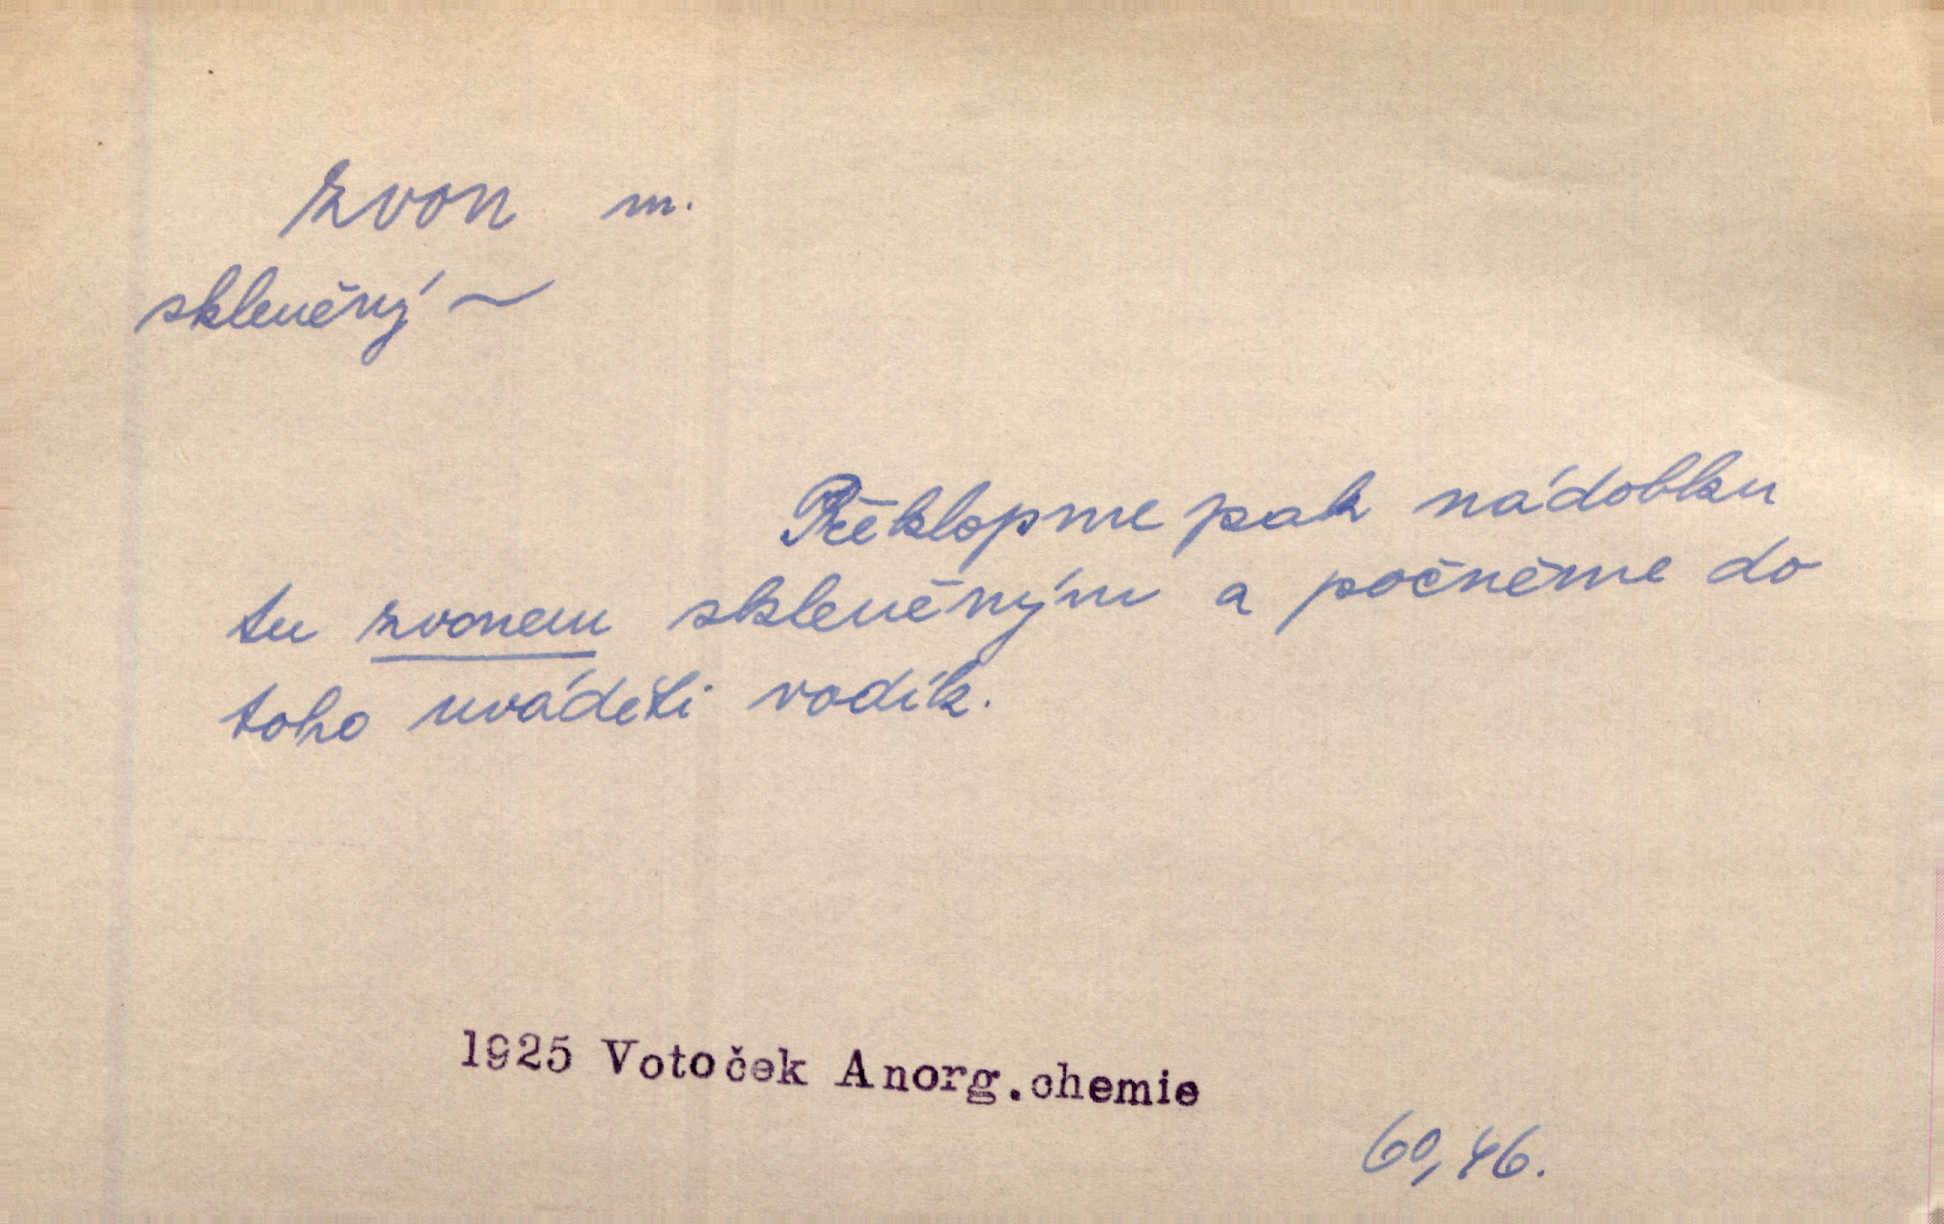 zvon m.
skleněný ~
Překlopme pak nádobku
tu zvonem skleněným a počněme do
toho uváděti vodík.
1925 Votoček Anorg.chemie
60,46.